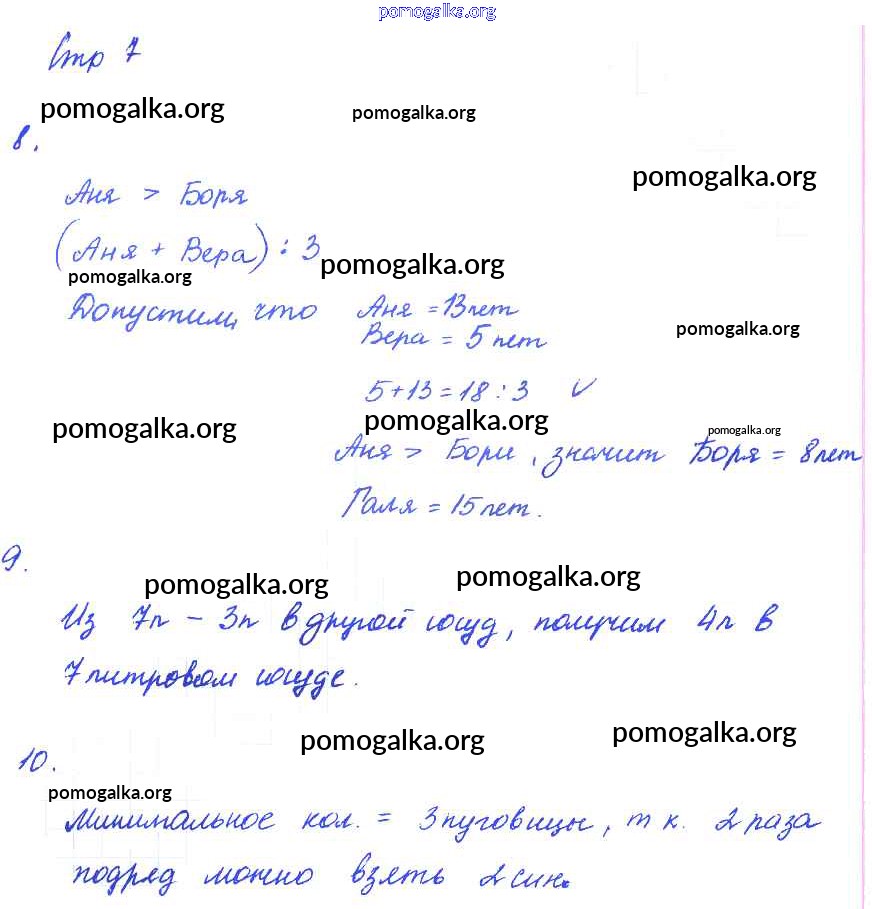 pomogalka.org
Стр 7
pomogalka.org pomogalka.org
8.
pomogalka.org
Аня > Боря
(Аня + Вера) : 3
pomogalka.org
pomogalka.org
Допустим, что Аня = 13 лет
Вера = 5 лет
pomogalka.org
5+13=18:3 ✓
pomogalka.org pomogalka.org pomogalka.org
Аня > Бори, значит Боря = 8 лет
Галя = 15 лет.
9.
pomogalka.org pomogalka.org
Из 7л - 3л в другой сосуд, получим 4л в
7 литровом сосуде.
pomogalka.org pomogalka.org
10.
pomogalka.org
Минимальное кол. = 3 пуговицы, т к. 2 раза
подряд можно взять 2 син.